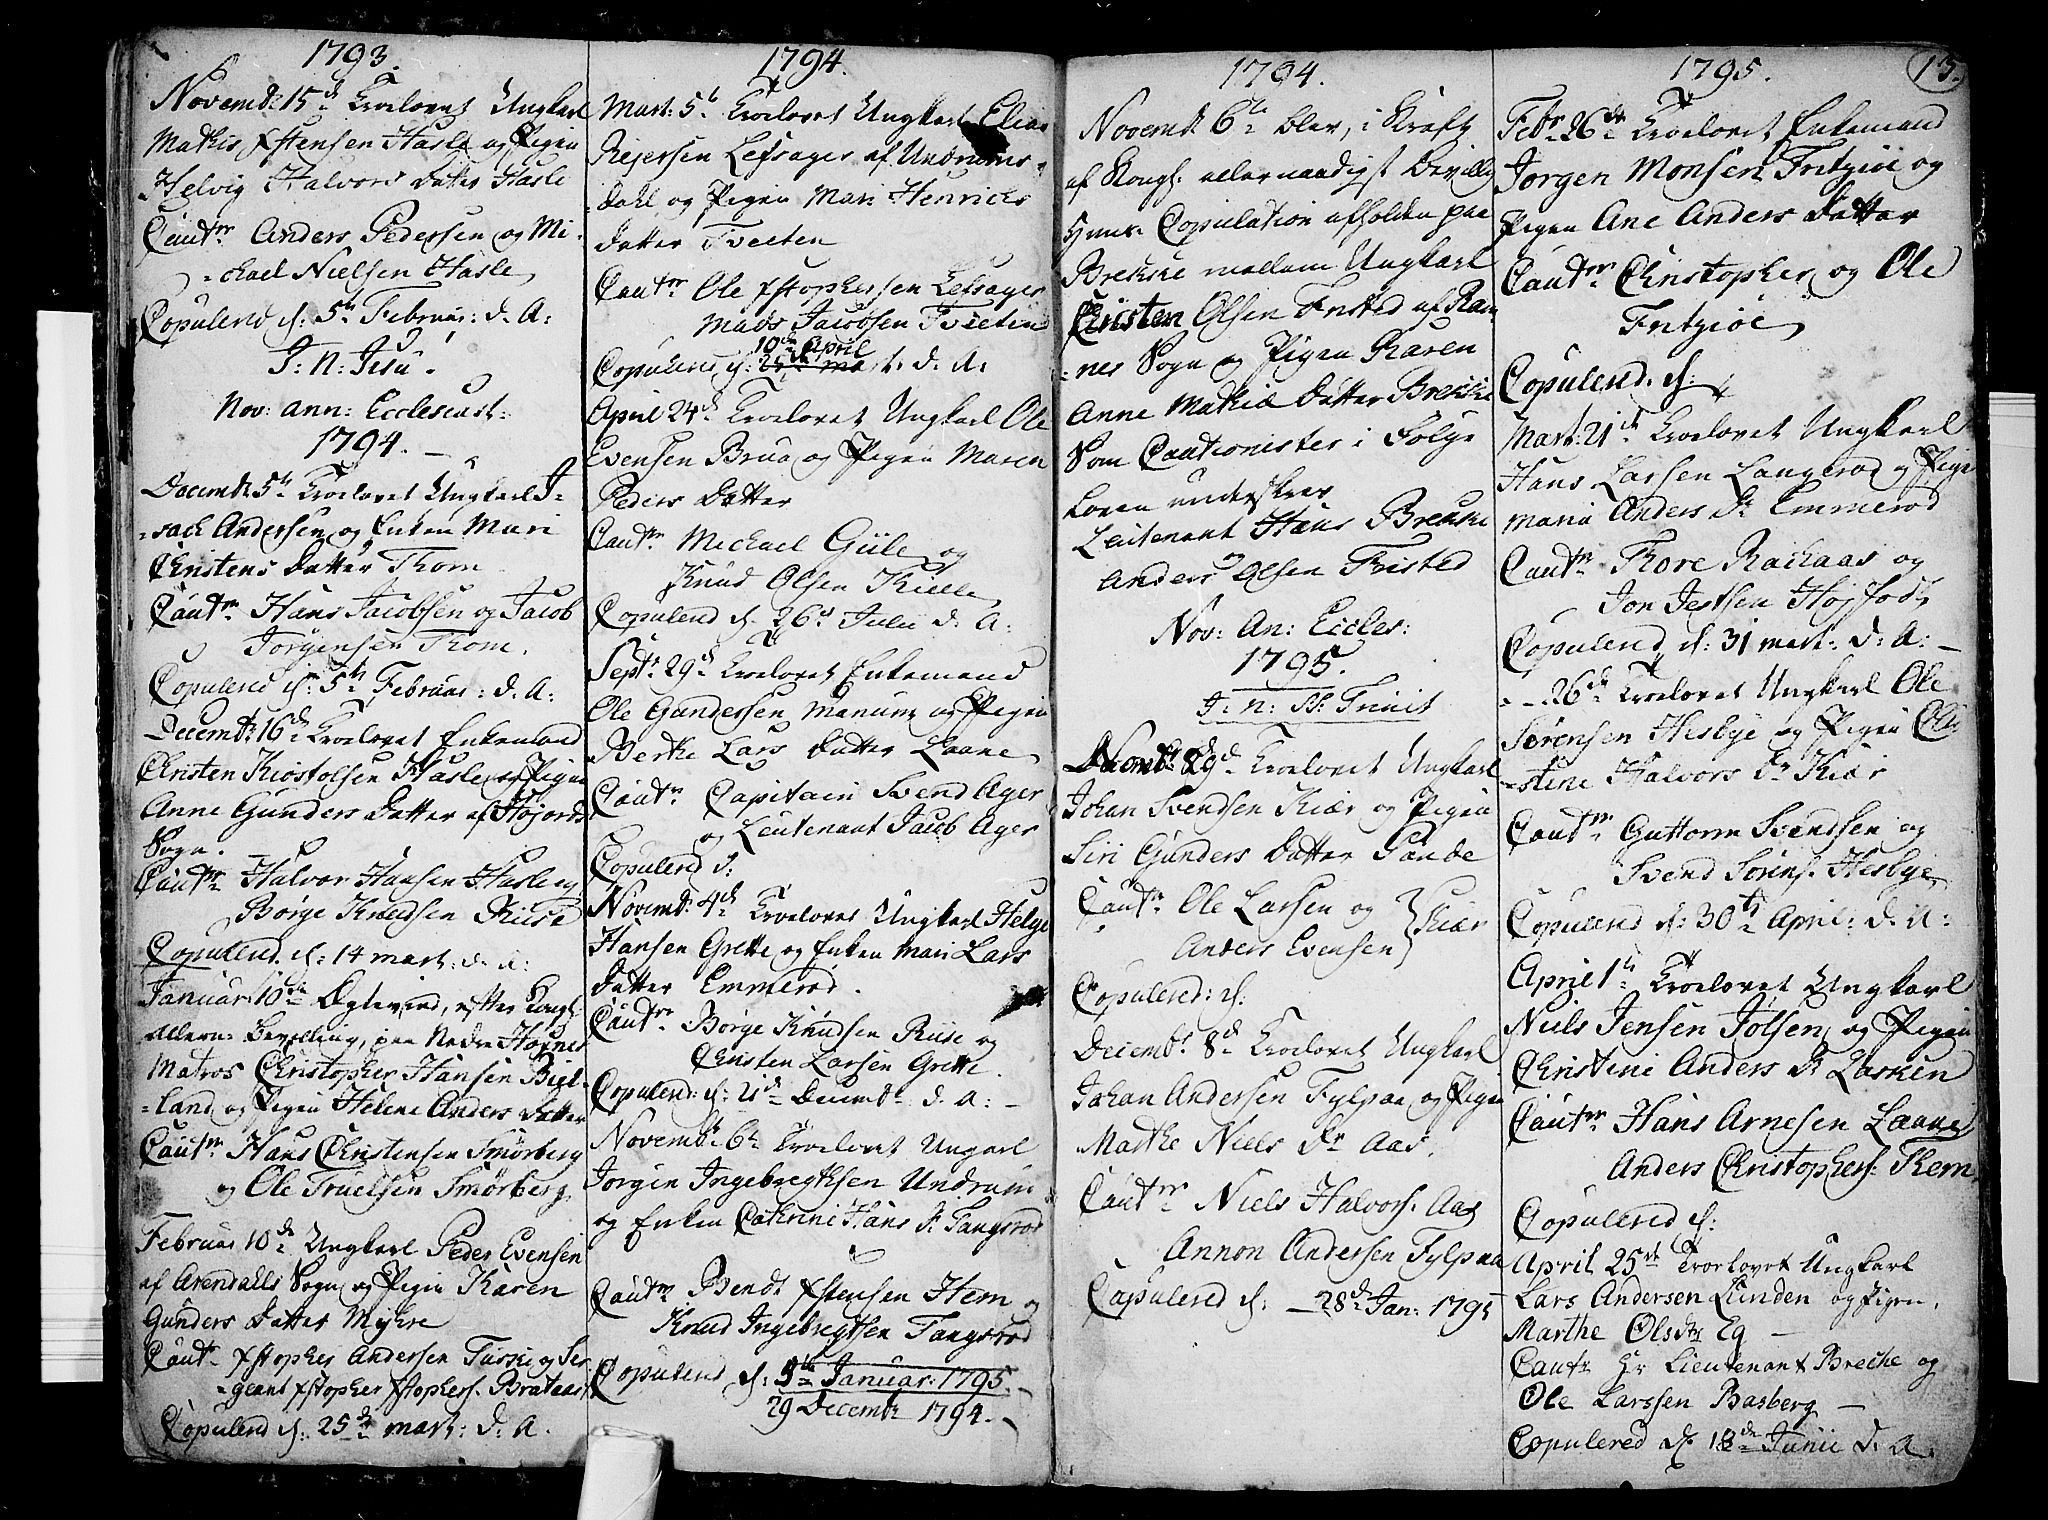 1793.
Novembr 15de Trolovet Ungkarl
Mathis Xstensen Hasle og Pigen
Helvig Halvors Datter Hasle
Cautnr Anders Pedersen og Mi-
-chael Nielsen Hasle
Copulerd d: 5te Februar: d. A:
I: n: Jesu!
Nov: ann: Ecclesiast:
1794. —
Decembr 5te Trolovet Ungkarl I-
-sach Andersen og Enken Mari
Christens Datter Thom
Cautnr Hans Jacobsen og Jacob
Jørgensen Thom.
Copulerd d: 5te Februar: d. A:
Decembr 16de Trolovet Enkemand
Christen Kiøstolsen Hasle og Pigen
Anne Gunders Datter af Højords
Sogn. —
Cautnr Halvor Hansen Hasle og
Børge Knudsen Riise
Copulerd. d: 14 mart: d. A:
Januar: 10de Ægtevied, efter Kongl:
allern: Bevilling, paa Nedre Højnes
Matros Christopher Hansen Biel-
-land og Pigen Helene Anders Datter
Cautnr Hans Christensen Smørberg
og Ole Truelsen Smørberg
Februar 10de Ungkarl Peder Evensen
af Arendalls Sogn og Pigen Karen
Gunders Datter Myhre
Cautnr Xstopher Andersen Tuffte og Ser-
-geant Xstopher Xstophers. Brataas
Copulerd d: 25de mart: d. A.
1794.
Mart: 5te Trolovet Ungkarl Elias
Rejersen Lefsager af Undrums-
-dahl og Pigen Mari Henrichs
Datter Tveeten
Cautnr Ole Xstophersen Lefsager
Mads Jacobsen Tveeten
10de April
Copulerd d: 25de mart. d. A.
April 24de Trolovet Ungkarl Ole
Evensen Brua og Pigen Maren
Peders Datter
Cautnr Michael Giile og
Knud Olsen Kielle
Copulerd d. 26de Julii d. A:
Septr 29de Trolovet Enkemand
Ole Gundersen Manum og Pigen
Berthe Lars Datter Laane
Cautnr Capitain Svend Ager
og Leutenant Jacob Ager
Copulerd d:
Novembr 4de Trolovet Ungkarl Helge
Hansen Grette og Enken Mari Lars
Datter Emmerød.
Cautnr Børge Knudsen Riise og
Christen Larsen Grette.
Copulerd: d: 21de Decembr d. A: —
Novembr 6te Trolovet Ungarl
Jørgen Ingebregthsen Undrum
og Enken Cathrine Hans Dr Tangsrød
Cautnr Bendt Xstensen Hem og
Knud Ingebregtsen Tangsrød
Copulerd d: 9de Januar: 1795. —
29 Decembr 1794. —
1794.
Novembr 6te blev, i Kraft
af Kongl. allernaadigst Bevilling
Huus Copulation afholden paa
Brekke mellem Ungkarl
Christen Olsen Fristed af Ram-
-nes Sogn og Pigen Karen
Anne Mathiæ Datter Brekke
Som Cautionister i Følge
Loven underskrev
Leutenant Hans Brekke
Anders Olsen Fristed
Nov: An: Eccles:
1795.
I: n: St: Trinit
Novembr 29de Trolovet Ungkarl
Johan Svendsen Kiær og Pigen
Siri Gunders Datter Sande
Cautnr Ole Larsen og
Anders Evensen } Kiær
Copulerd: d:
Decembr 8de Trolovet Ungkarl
Johan Andersen Fylpaa og Pigen
Marthe Niels Dr Aas.
Cautnr Niels Halvors. Aas
Annon Andersen Fylpaa
Copulerd d: — 28de Jan: 1795
1795.
13.
Febr 26de Trolovet Enkemand
Jørgen Monsen Fritziøe og
Pigen Ane Anders Datter
Cautnr Christopher og Ole
Fritziøe
Copulerd. d:
Mart: 21de Trolovet Ungkarl
Hans Larsen Langerød og Pigen
Maria Anders Dr Emmerød
Cautnr Thore Rachaas og
Jon Jertsen Højfodt
Copulerd d: 31 mart: d: A: —
- - 26de Trolovet Ungkarl Ole
Sørensen Hesbye og Pigen Chri-
-stine Halvors Dr Kiær
Cautnr Guttorm Svendsen og
Svend Sørens. Hesbye
Copulerd d: 30te April: d. A:
April 1te Trolovet Ungkarl
Niels Jensen Jølsen og Pigen
Christine Anders Dr Laskin
Cautnr Hans Arnesen Laane
Anders Christophers. Them
Copulerd d:
April 25de Trolovet Ungkarl
Lars Andersen Lunden og Pigen
Marthe Olsdtr Eg —
Cautr Hr Lieutenant Breche og
Ole Larssen Basberg —
Copulered d. 18de Junii d. A.